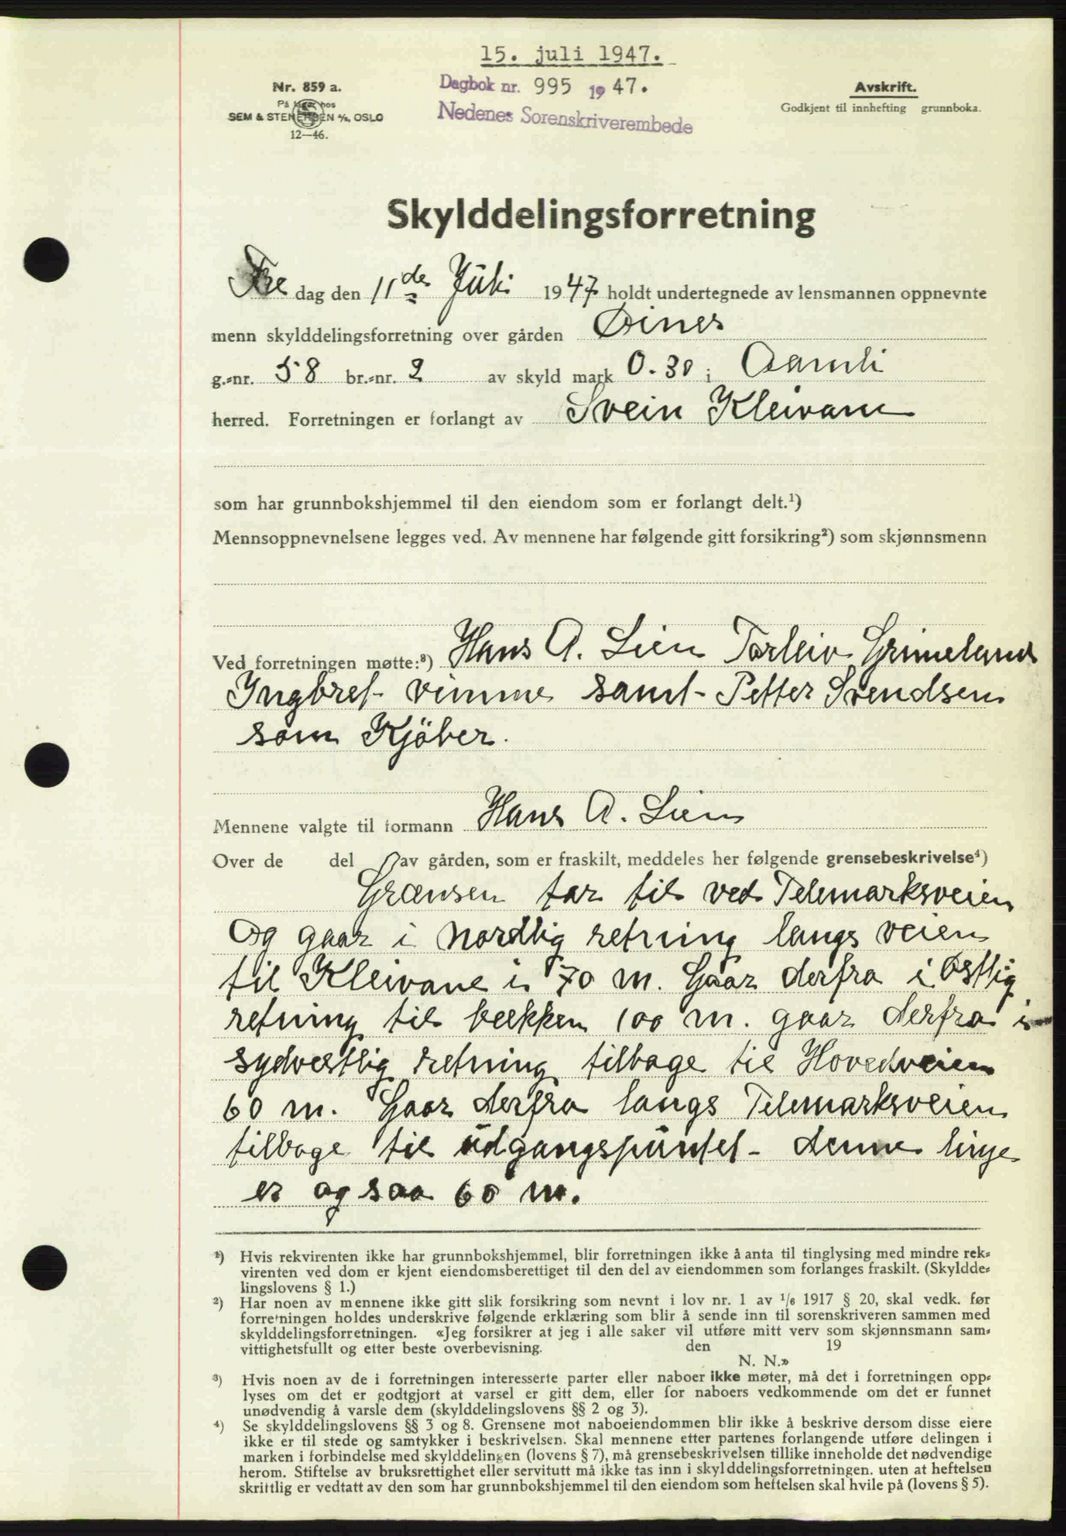 15. juli 1947.
Nr. 859 a.
På lager hos
SEM & STENERSEN A/S, OSLO
12—46.
Dagbok nr. 995 1947.
Nedenes Sorenskriverembede
Avskrift.
Godkjent til innhefting grunnboka.
Skylddelingsforretning
Fre dag den 11de Juli 1947 holdt undertegnede av lensmannen oppnevnte
menn skylddelingsforretning over gården Øines
g.-nr. 58 br.-nr. 2 av skyld mark 0.30 i Aamli
herred. Forretningen er forlangt av Svein Kleivane
som har grunnbokshjemmel til den eiendom som er forlangt delt.¹)
Mennsoppnevnelsene legges ved. Av mennene har følgende gitt forsikring²) som skjønnsmenn
Ved forretningen møtte:³) Hans A. Lien Torleiv Grimeland
Ingbret Vimme samt Petter Svendsen
som Kjöber.
Mennene valgte til formann Hans A. Lien
Over de del av gården, som er fraskilt, meddeles her følgende grensebeskrivelse⁴)
Grænsen tar til ved Telemarksveien
Og gaar i Nordlig retning langs veien
til Kleivane i 70 m. Gaar derfra i Østlig
retning til bekken 100 m. gaar derfra i
sydvestlig retning tilbage til Hovedveien
60 m. Gaar derfra langs Telemarksveien
tilbage til udgangspuntet - denne linje
er og saa 60 m.
¹) Hvis rekvirenten ikke har grunnbokshjemmel, blir forretningen ikke å anta til tinglysing med mindre rek-
virenten ved dom er kjent eiendomsberettiget til den del av eiendommen som forlanges fraskilt. (Skyldde-
lingslovens § 1.)
²) Har noen av mennene ikke gitt slik forsikring som nevnt i lov nr. 1 av 1/6 1917 § 20, skal vedk. før
forretningen holdes underskrive følgende erklæring som blir å sende inn til sorenskriveren sammen med
skylddelingsforretningen. «Jeg forsikrer at jeg i alle saker vil utføre mitt verv som skjønnsmann sam-
vittighetsfullt og etter beste overbevisning. den 19
N. N.»
³) Hvis noen av de i forretningen interesserte parter eller naboer ikke møter, må det i forretningen opp-
lyses om det er godtgjort at varsel er gitt dem, eller for naboers vedkommende om det er funnet
unødvendig å varsle dem (skylddelingslovens §§ 2 og 3).
⁴) Se skylddelingslovens §§ 3 og 8. Grensene mot naboeiendommen blir ikke å beskrive dersom disse eiere
ikke er til stede og samtykker i beskrivelsen. Skal mennene etter partenes forlangende utføre delingen i
marken i forbindelse med skylddelingen (lovens § 7), må grensebeskrivelsen tillike inneholde det nødvendige
herom. Stiftelse av bruksrettighet eller servitutt må ikke tas inn i skylddelingsforretningen. uten at heftelsen
skriftlig er vedtatt av den som har grunnbokshjemmel til den eiendom som heftelsen skal hvile på (lovens § 5).